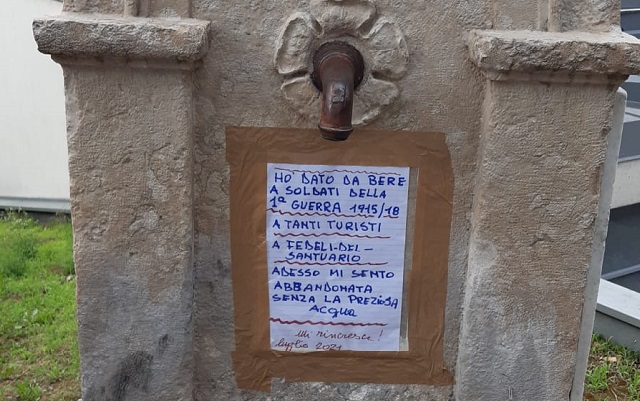 HO' DATO DA BERE
A SOLDATI DELLA
1ª GUERRA 1915/18
A TANTI TURISTI
A FEDELI-DEL-
SANTUARIO
ADESSO MI SENTO
ABBANDONATA
SENZA LA PREZIOSA
ACQUA
mi rincresce!
luglio 2021